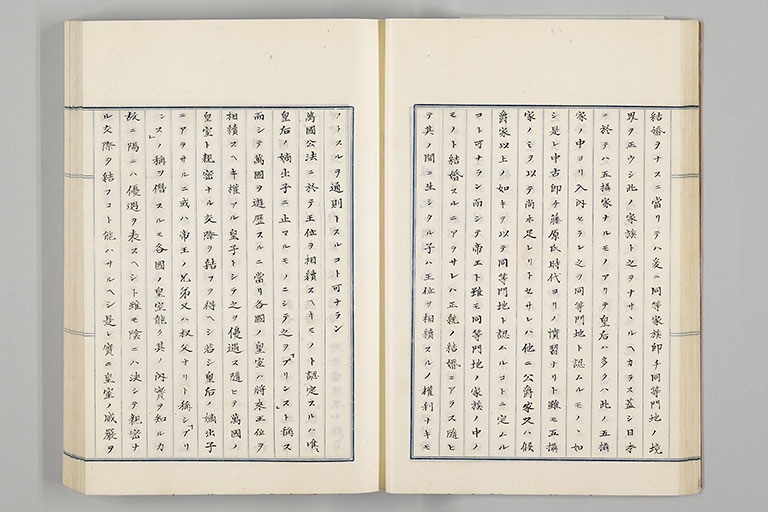 結婚ヲナスニ當リテハ爰ニ同等家族卽チ同等門地ノ境
界ヲ正ウシ此ノ家族ト之ヲナサヽルヘカラス蓋シ日本
ニ於テハ五攝家ナルモノアリテ皇后ハ多クハ此ノ五攝
家ノ中ヨリ入内セラレ之ヲ同等門地ト認ムルモノヽ如
シ是レ中古卽チ藤原氏時代ヨリノ慣習ナリト雖モ五攝
家ノミヲ以テ尚ホ足レリトセサレハ他ニ公爵家又ハ侯
爵家以上ノ如キヲ以テ同等門地ト認ムルコトニ定ムル
コト可ナラン而シテ帝王ト雖モ同等門地ノ家族中ノ
モノト結婚スルニアラサレハ正就ノ結婚ニアラス隨ヒ
テ其ノ間ニ生シタル子ハ王位ヲ相續スルノ權利ナキモ
ノトスルヲ通則トスルコト可ナラン
萬國公法ニ於テ王位ヲ相續スヘキモノト認定スルハ唯
皇后ノ嫡出子ニ止マルモノニシテ之ヲ「プリンスト稱ス
而シテ萬國ヲ遊歷スルニ當リ各國ノ皇室ハ將來王位ヲ
相續スヘキ權アル皇子トシテ之ヲ優遇ス隨ヒテ萬國ノ
皇室ト親密ナル交際ヲ結フヲ得ヘシ若シ皇后ノ嫡出子
ニアラサルニ或ハ帝王ノ兄弟又ハ叔父ナリト稱シ「プリ
ンス」ノ稱ヲ僭スルモ各國ノ皇室能ク其ノ内實ヲ知ルカ
故ニ陽ニハ優遇ヲ表スヘシト雖モ陰ニハ決シテ親密ナ
ル交際ヲ結フコト能ハサルヘシ是レ實ニ皇室ノ威嚴ヲ